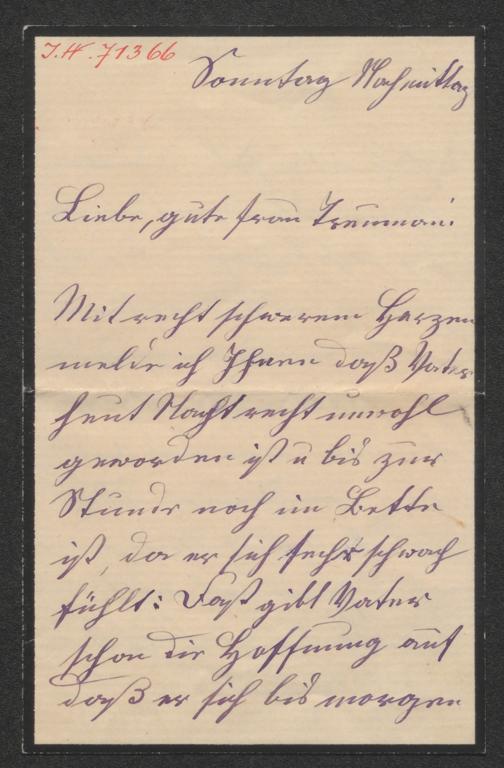 I.N. 71366
Sonntag Nachmittag
Liebe, gute Frau
Mit recht schwerem Herzen
melde ich Ihnen daß Vater
heut Nacht recht unwohl
geworden ist u bis zur
Stunde noch im Bette
ist, da er sich sehr schwach
fühlt: Fast gibt Vater
schon die Hoffnung auf
daß er sich bis morgen